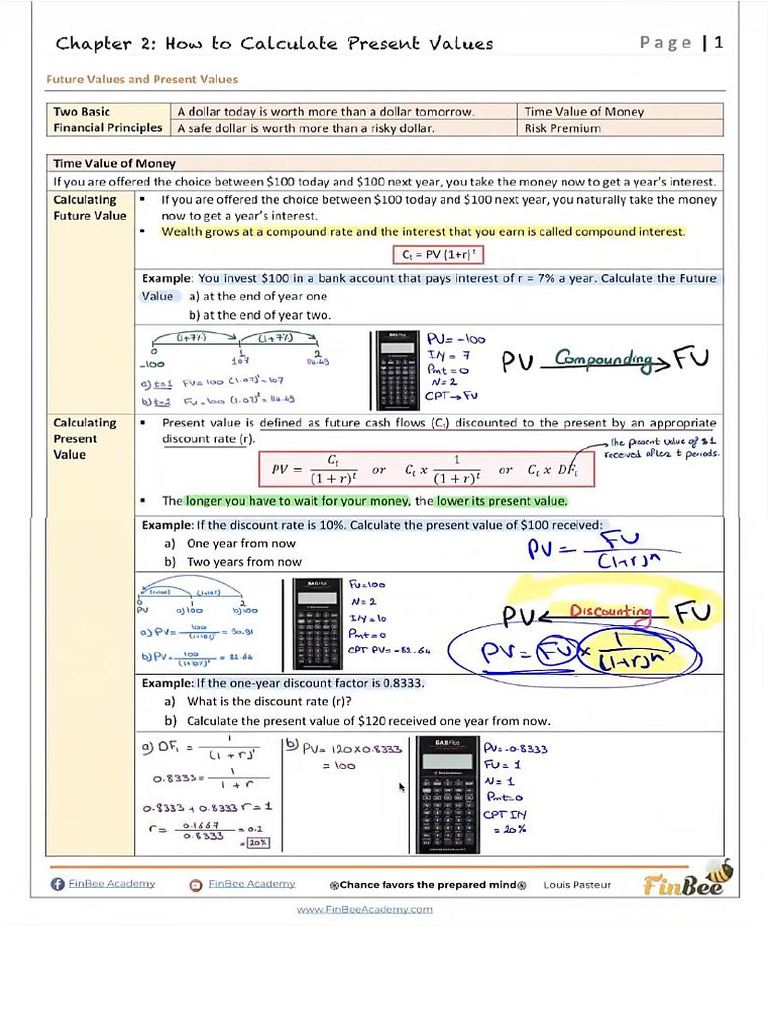 Chapter 2: How to Calculate Present Values
Page | 1
Future Values and Present Values
Two Basic Financial Principles
A dollar today is worth more than a dollar tomorrow.
Time Value of Money
A safe dollar is worth more than a risky dollar.
Risk Premium
Time Value of Money
If you are offered the choice between $100 today and $100 next year, you take the money now to get a year's interest.
Calculating
Future Value
▪ If you are offered the choice between $100 today and $100 next year, you naturally take the money
now to get a year's interest.
▪ Wealth grows at a compound rate and the interest that you earn is called compound interest.
Ct = PV (1+r)^t
Example: You invest $100 in a bank account that pays interest of r = 7% a year. Calculate the Future
Value a) at the end of year one
b) at the end of year two.
(1+7%) (1+7%)
0 1 2
-100 107 114.49
a) t=1 FV=100 (1.07)^1=107
b) t=2 FV=100 (1.07)^2=114.49
PV=-100
I/Y = 7
Pmt=0
N=2
CPT→FV
PV Compounding FV
Calculating
Present
Value
▪ Present value is defined as future cash flows (Ct) discounted to the present by an appropriate
discount rate (r).
the present value of $1
received after t periods.
PV = Ct/(1+r)^t or Ct x 1/(1+r)^t or Ct x DFt
▪ The longer you have to wait for your money, the lower its present value.
Example: If the discount rate is 10%. Calculate the present value of $100 received:
a) One year from now
b) Two years from now
PV = FV/(1+r)^n
(1+10%) (1+10%)
0 1 2
PV a)100 b)100
a) PV= 100/(1+10%)^1 = 90.91
b) PV= 100/(1+10%)^2 = 82.64
FV=100
N=2
I/Y=10
Pmt=0
CPT PV=-82.64
PV Discounting FV
PV = FV x 1/(1+r)^n
Example: If the one-year discount factor is 0.8333.
a) What is the discount rate (r)?
b) Calculate the present value of $120 received one year from now.
a) DF1 = 1/(1+r)^1
0.8333 = 1/(1+r)
0.8333 + 0.8333 r = 1
r = 0.1667/0.8333 = 0.2
20%
b) PV= 120x0.8333
= 100
PV=-0.8333
FV=1
N=1
Pmt=0
CPT I/Y
= 20%
FinBee Academy
FinBee Academy
Chance favors the prepared mind
Louis Pasteur
FinBee
www.FinBeeAcademy.com